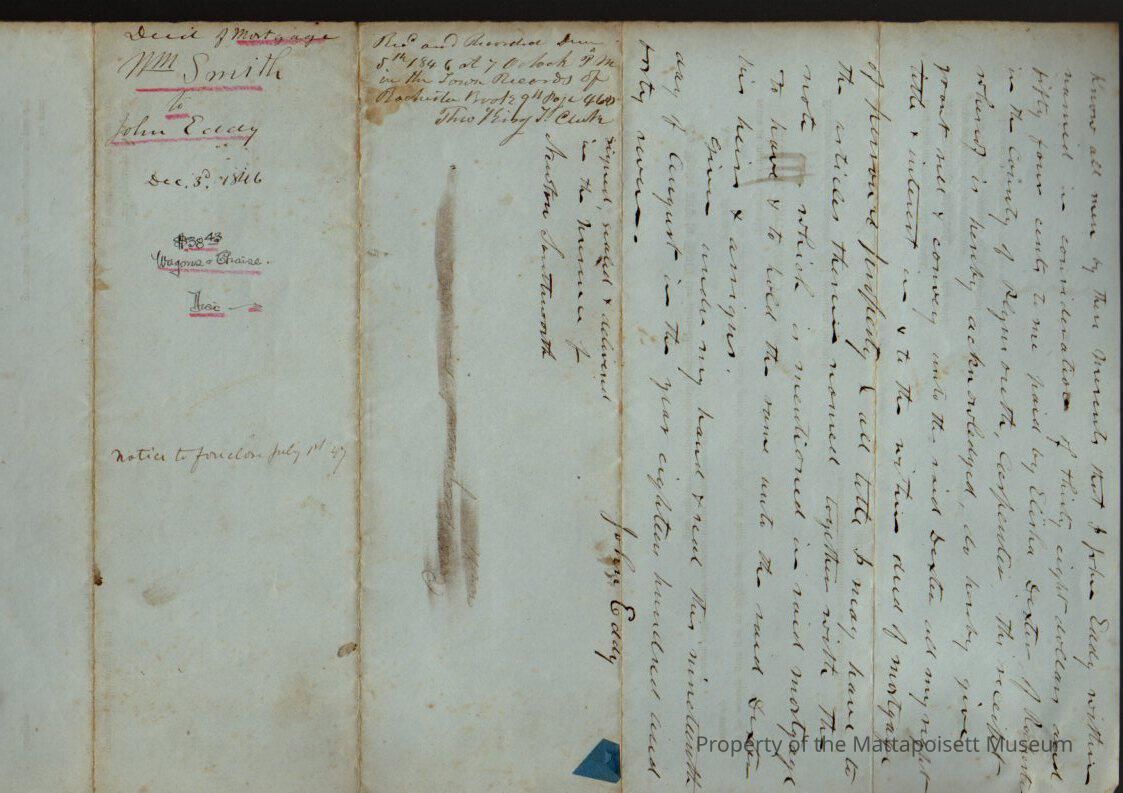 Deed of Mortgage
Wm Smith
to
John Eddy
Dec. 3d. 1846
$38 43
Wagons & Chaise.
notice to foreclose July 1st 47
Recd and Recorded Decm
5th 1846 at 7 Oclock P.M
in the Town Records of
Rochester Book 9th Page 464
Theo King T. Clerk
Know all men by these Presents that I John Eddy within
named in consideration of thirty eight dollars and
fifty four cents to me paid by Elisha Dexter of Rochester
in the County of Plymouth, Carpenter the receipt
whereof is hereby acknowledged, do hereby give
grant sell & convey unto the said Dexter all my right
title & interest in & to the within deed of mortgage
of personal property & all title I may have to
the articles therein named together with the
note which is mentioned in said mortgage
To have & to hold the same unto the said Dexter
his heirs & assigns.
Given under my hand & seal this nineteenth
day of August in the year eighteen hundred and
forty seven.
John Eddy
signed, sealed & delivered
in the presence of
Newton Southworth
Property of the Mattapoisett Museum